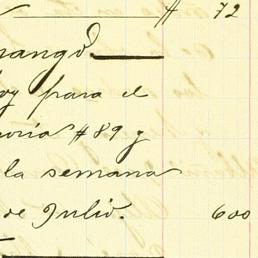 # 72
rango.
oy para el
oria #89 y
la semana
de Julio. 600